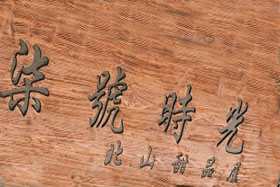 柒號時光
北山甜品屋